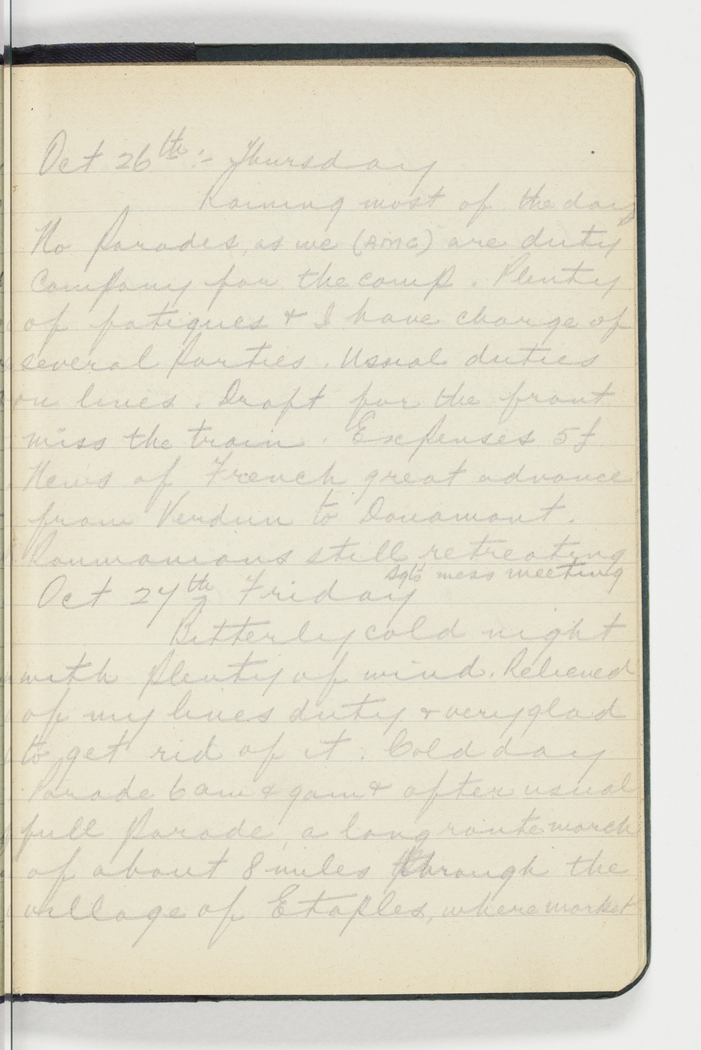 Oct 26th :- Thursday
Raining most of the day
No Parades, as we (AMC) are duty
Company for the camp. Plenty
of fatigues & I have charge of
several Parties. Usual duties
on lines. Draft for the front
miss the train. Expenses 5f.
News of French great advance
from Verdun to Douamont.
Roumanians still retreating
Sgts mess meeting
Oct 27th Friday
Bitterly cold night
with plenty of wind. Relieved
of my lines duty & very glad
to get rid of it. Cold day
Parade 6am & 9am & after usual
full Parade, a long route march
of about 8 miles through the
village of Etaples, where market